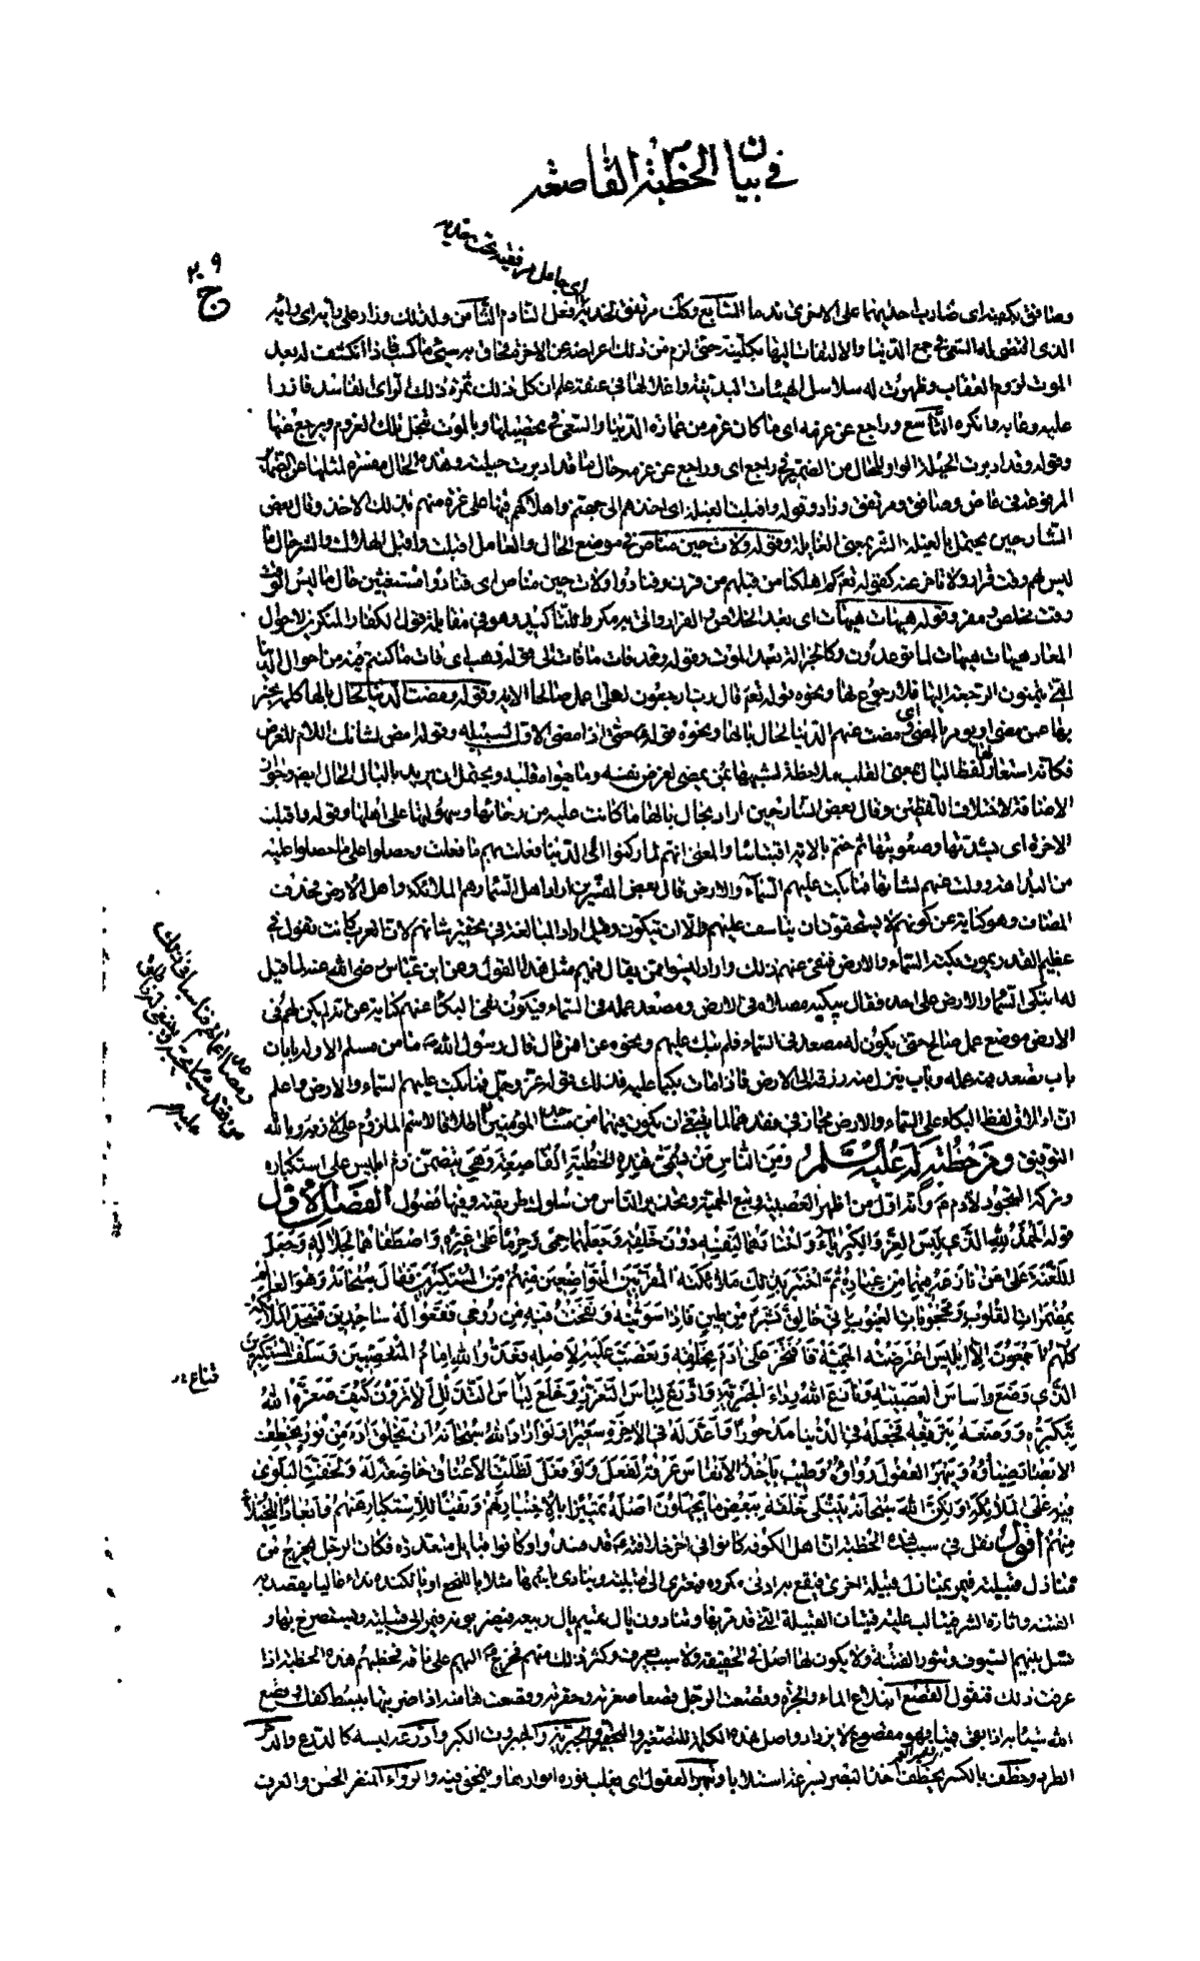 في بيان الخطبة القاصعة
ج
وصافق بكفيه اى ضارب احديهما على الاخرى ندما السابع وكذلك مرتفق بخديه فعل النادم الثامن ولذلك وزار على رأيه اى رأيه
الذى اقتضى له السعى في جمع الدنيا والالتفات اليها بكليته حتى لزم من ذلك اعراضه عن الاخرة فحاق به سيئ ما كسب فاذا انكشف له بعد
الموت لزوم العقاب وظهرت له سلاسل الهيئات البدنية واغلالها في عنقه علم ان كل ذلك ثمرة ذلك الرأى الفاسد فازرا
عليه وعابه وانكره التاسع وراجع عن عزمه اى ما كان عزم من عمارة الدنيا والسعى في تحصيلها وبالموت تنحل تلك العزوم ويرجع عنها
وقوله وقد ادبرت الحيلة الواو للحال من الضمير في راجع اى وراجع عن عزمه حال ما قد ادبرت حيلته وهذه الحال مفسرة لمثلها عن الضمائر
المرفوعة في عاض وصافق ومرتفق وزار وقوله واقبلت الغيلة اى اخذهم الى جهنم واهلاكهم فيها على غرة منهم بذلك الاخذ وقال بعض
الشارحين يحتمل بالغيلة الشر بمعنى الغايلة وقوله ولات حين مناص في موضع الحال والعامل اقبلت واقبل الهلاك والشر حال ما
ليس لهم وقت فرار ولا تأخر عنه كقوله تعالى كم اهلكنا من قبلهم من قرن فنادوا ولات حين مناص اى فنادوا مستغيثين حال ما ليس الوقت
وقت مخلص ومفر وقوله هيهات هيهات اى بعد الخلاص والفرار واتى به مكررا للتأكيد وهو في مقابلة قول الكفار المنكرين لاحوال
المعاد هيهات هيهات لما توعدون وكالجزاء له بعد الموت وقوله وقد فات ما فات الى قوله ذهب اى فات ما كنتم فيه من احوال الدنيا
التي يتمنون الرجعة اليها فلا رجوع لها ونحوه قوله تعالى قال رب ارجعون لعلى اعمل صالحا الاية وقوله ومضت الدنيا لحال بالها كلمة يخبر
بها عمن مضى اى مضت عنهم الدنيا لحال بالها ونحوه قولهم حتى اذا مضى الاول لسبيله وقوله امض لشانك اللام للغرض
فكانه استعار لها لفظ البال بمعنى القلب ملاحظة لشبهها بمن يمضى لغرض نفسه وما يهواه قلبه ويحتمل ان يريد بالبال الحال ايضا وجواز
الاضافة لاختلاف اللفظين وقال بعض الشارحين اراد بحال بالها ما كانت عليه من رخائها وسهولتها على اهلها وقوله واقبلت
الاخرة اى بشدتها وصعوبتها ثم ختم بالاية اقتباسا والمعنى انهم لما ركنوا الى الدنيا فعلت بهم ما فعلت وحصلوا على ما حصلوا عليه
فما بكت عليهم السماء والارض قال بعض المفسرين اراد اهل السماء وهم الملائكة واهل الارض فحذف
المضاف وهو كناية عن كونهم لا يستحقون ان يتاسف عليهم ولا ان يبكون وقيل اراد المبالغة في تحقير شانهم لان العرب كانت تقول في
عظيم القدر يموت بكته السماء والارض فنفى عنهم ذلك واراد ليسوا ممن يقال فيهم مثل هذا القول وعن ابن عباس رضى الله عنه لما قيل
له اتبكى السماء والارض على احد فقال يبكيه مصلاه في الارض ومصعد عمله في السماء فيكون نفى البكاء عنهم كناية عن انه لم يكن لهم في
الارض موضع عمل صالح حتى يكون له مصعد في السماء فلم تبك عليهم ونحوه عن انس قال قال رسول الله ما من مسلم الا وله بابان
باب يصعد منه عمله وباب ينزل منه رزقه الى الارض فاذا مات بكيا عليه فذلك قوله عز وجل فما بكت عليهم السماء والارض واعلم
ان اطلاق لفظ البكاء على السماء والارض مجاز في فقدهما لما ينبغي ان يكون فيهما من المؤمنين اطلاقا لاسم الملزوم على لازمه وبالله
التوفيق ومن خطبة له عليه السلم ومن الناس من يسمى هذه الخطبة القاصعة وهي تتضمن ذم ابليس على استكباره
وتركه السجود لادم وانه اول من اظهر العصبية وتبع الحمية وتحذير الناس من سلوك طريقته وفيها فصول الفصل الاول
قوله الحمد لله الذي لبس العز والكبرياء واختارهما لنفسه دون خلقه وجعلهما حمى وحرما على غيره واصطفاهما لجلاله وجعل
اللعنة على من نازعه فيهما من عباده ثم اختبر بذلك ملائكته المقربين ليميز المتواضعين منهم من المستكبرين فقال سبحانه وهو العالم
بمضمرات القلوب ومحجوبات الغيوب اني خالق بشرا من طين فاذا سويته ونفخت فيه من روحي فقعوا له ساجدين فسجد الملائكة
كلهم اجمعون الا ابليس اعترضته الحمية فافتخر على ادم بخلقه وتعصب عليه لاصله فعدو الله امام المتعصبين وسلف المستكبرين
الذي وضع اساس العصبية ونازع الله رداء الجبرية وادرع لباس التعزز وخلع قناع التذلل الا ترون كيف صغره الله
بتكبره ووضعه بترفعه فجعله في الدنيا مدحورا واعد له في الاخرة سعيرا ولو اراد الله سبحانه ان يخلق ادم من نور يخطف
الابصار ضياؤه ويبهر العقول رواؤه وطيب ياخذ الانفاس عرفه لفعل ولو فعل لظلت الاعناق خاضعة له ولخفت البلوى
فيه على الملائكة ولكن الله سبحانه يبتلي خلقه ببعض ما يجهلون اصله تمييزا بالاختبار لهم ونفيا للاستكبار عنهم وابعادا للخيلاء
منهم اقول نقل في سبب هذه الخطبة ان اهل الكوفة كانوا في اخر خلافته قد فسدوا وكانوا قبايل متعددة فكان الرجل يخرج من
منازل قبيلته فيمر بمنازل قبيلة اخرى فيقع به ادنى مكروه فيعتزى الى قبيلته وينادى باسمها مثلا يا للنخع او يا لكندة نداء عاليا يقصد به
الفتنة واثارة الشر فيتالب عليه فتيان القبيلة التي قد مر بها وينادون يال تميم يال ربيعة فيضربونه فيمر الى قبيلته ويستصرخ بها و
تسل بينهم السيوف وتثور الفتنة ولا يكون لها اصل في الحقيقة ولا سبب يعرف وكثر ذلك منهم فخرج اليهم على ناقة فخطبهم هذه الخطبة اذا
عرفت ذلك فنقول القصع ابتلاع الماء والجرة وقصعت الرجل قصعا صغرته وحقرته وقصعت هامته اذا ضربتها ببسط كفك وقصع
الله شبابه اذا بقى قميئا فهو مقصوع لا يزداد واصل هذه الكلمة للتصغير والتحقير والجبرية والجبروت الكبر وادرعه لبسه كالدرع والدحر
الطرد وخطف بالكسر يخطف اخذ البصر بسرعة استلابا وبهر العقول اى يغلب نوره انوارها ويمحق فيه والرواء المنظر الحسن والعرف
قناع